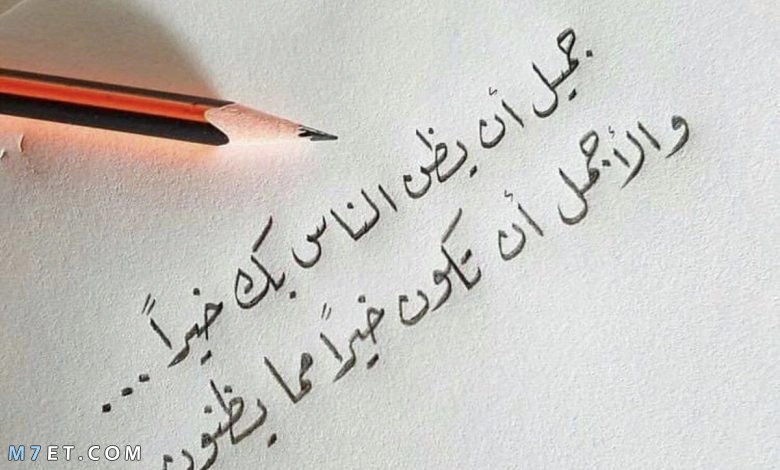 جميل أن يظن الناس بك خيراً...
والأجمل أن تكون خيراً مما يظنون
M7ET.COM